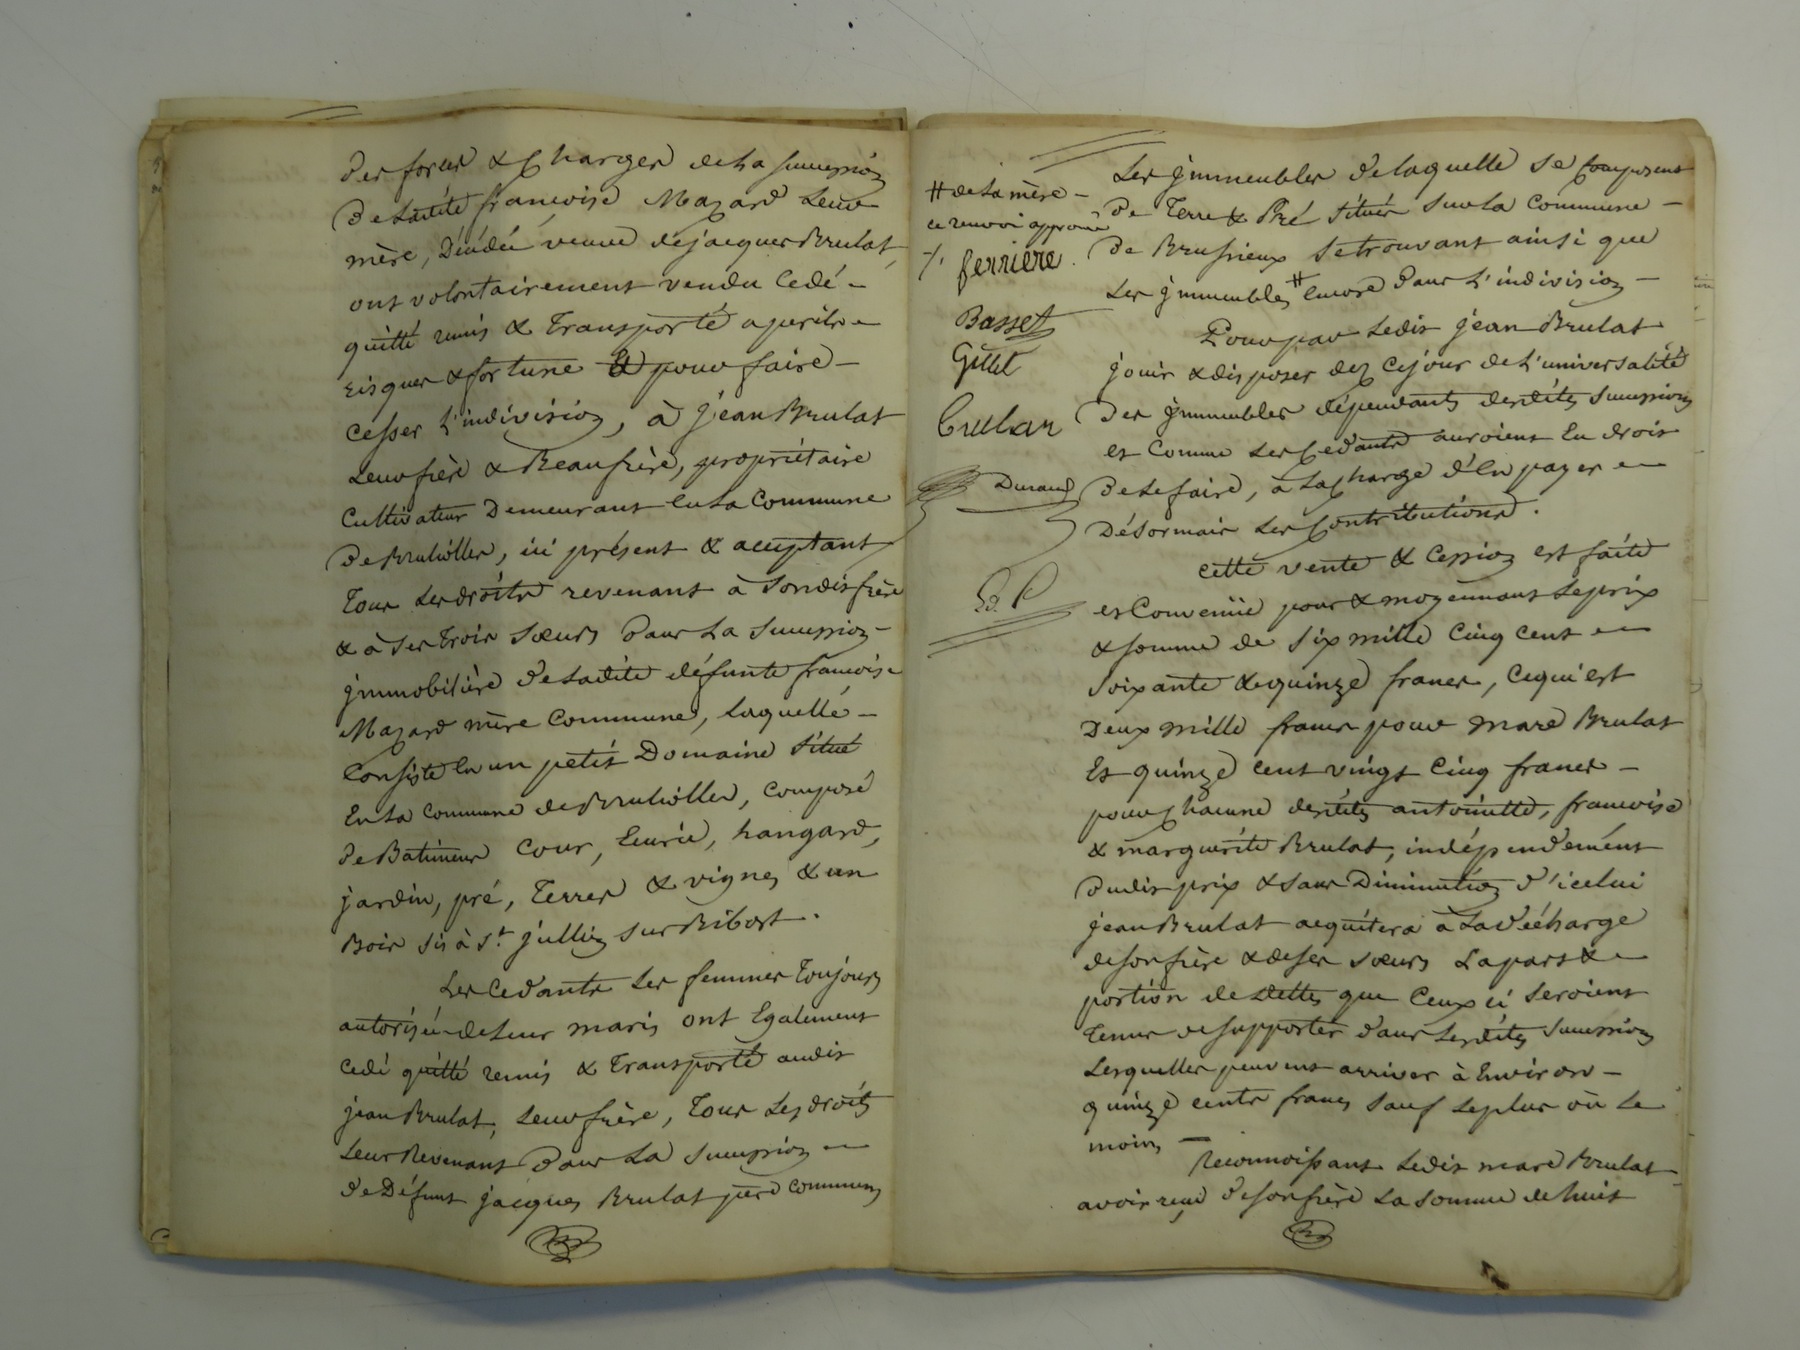 des forces & Charges de la succession
de Ladite francoise Mazard Leur
mère, Décédée veuve de jacques Brulat,
ont volontairement vendu Cedé -
quitté remis & Transporté a perils
risques & fortune & pour faire -
Cesser L'indivision, à Jean Brulat
Leur frère & Beaufrère, propriétaire
Cultivateur Demeurant En La Commune
De Brulliolles, ici présent & acceptant
Tous Les droits revenant à Sondit frère
& à Ses trois Sœurs Dans La Succession -
jmmobilière de Ladite défunte francoise
Mazard mère Commune, Laquelle -
Consiste En un petit Domaine Situé
En La Commune de Brulliolles, Composé
de Batiment Cour, Ecurie, hangard,
jardin, pré, Terres & vignes & un
Bois sis à St. jullien sur Bibost.
Les Cedants Les femmes Toujours
autorisées de Leur maris ont Egalement
Cedé quitté remis & Transporté audit
jean Brulat, Leur frère, Tous Les droits
Leur Revenant Dans La Succession
de Défunt jacques Brulat père commun
# de La mère -
ce renvoi approuvé
ferrière.
Basset
Gillet
Durand
Les jmmeubles de laquelle se Composent
de Terre & Pré Situés Sur La Commune -
de Brussieux Setrouvant ainsi que
Les jmmeubles # Encore Dans L'indivision -
Pour par Ledit jean Brulat
jouir & disposer dez Cejour de L'universalité
Des jmmeubles dépendants desdites Successions
et Comme Les Cedants auroient Eu droit
de Le faire, à La Charge d'En payer
Désormais Les Contributions.
Cette vente & Cession est faite
et Convenüe pour & moyennant Le prix
& Somme de Six mille Cinq Cent
Soixante & quinze francs, Cequi est
Deux mille francs pour Marc Brulat
Et quinze Cent vingt Cinq francs -
pour Chacune desdites antoinette, francoise
& marguerite Brulat, indépendement
Dudit prix & Sans Diminution d'icelui
jean Brulat acquitera à La décharge
de Son frère & de Ses Sœurs La part &
portion de Dettes que Ceux ci Seroient
Tenus de Supporter dans Lesdites Succession
Lesquelles peuvent arriver à Environ -
quinze cents francs Sauf Le plus où Le
moins -
Reconnoissant Ledit Marc Brulat
avoir reçu de Son frère La Somme de huit